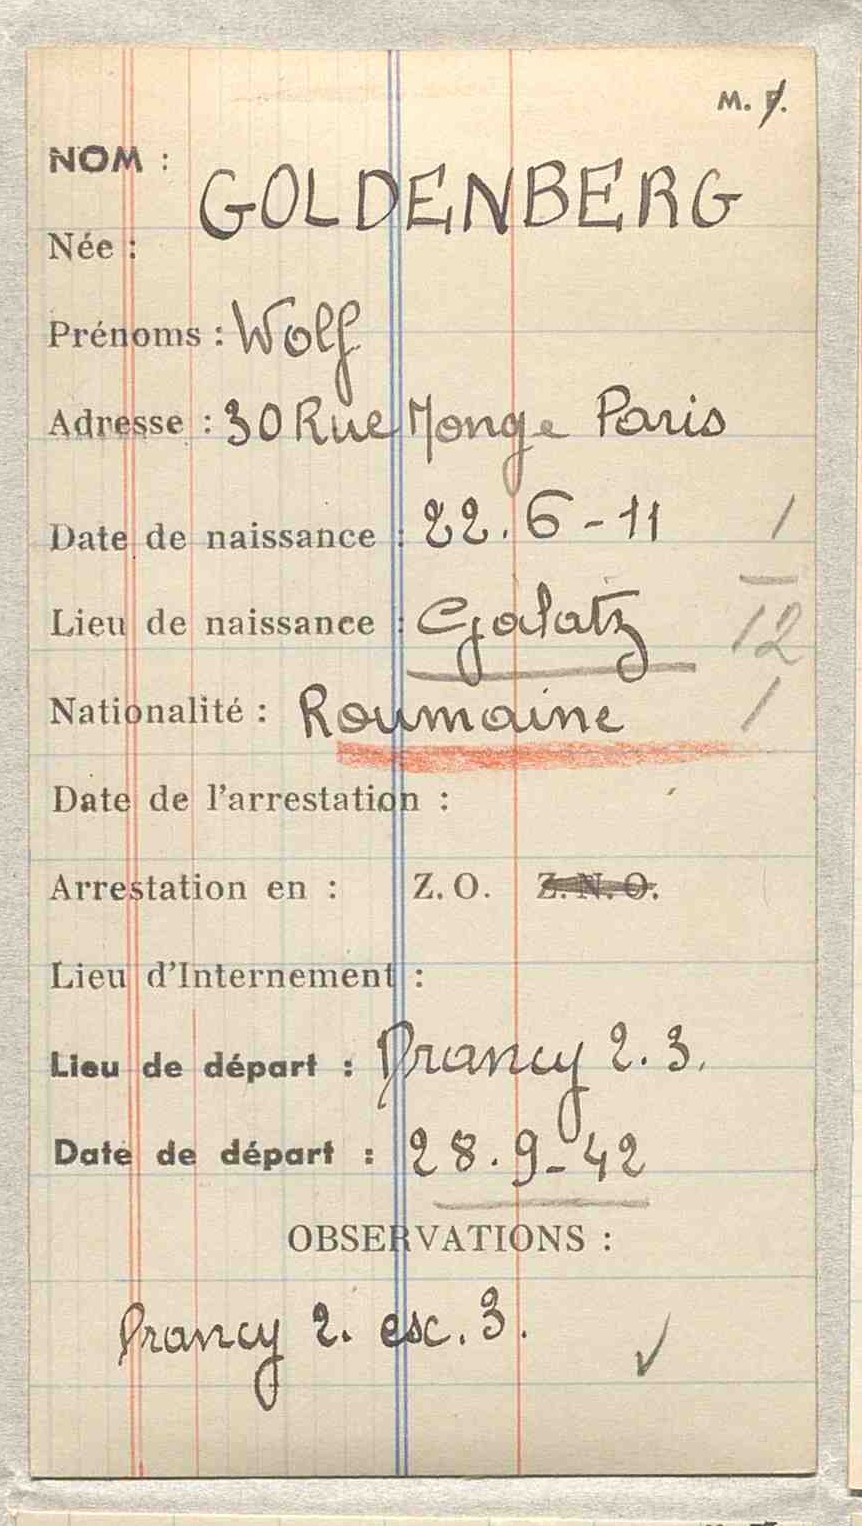 M. F.
NOM : GOLDENBERG
Née :
Prénoms : Wolf
Adresse : 30 Rue Monge Paris
Date de naissance : 22.6-11 /
Lieu de naissance : Galatz 12
Nationalité : Roumaine /
Date de l'arrestation :
Arrestation en : Z.O. Z.N.O.
Lieu d'Internement :
Lieu de départ : Drancy 2.3.
Date de départ : 28.9-42
OBSERVATIONS :
Drancy 2. esc. 3.